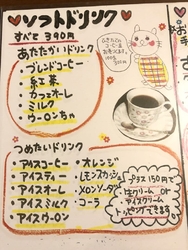 ソフトドリンク
すべて 390円
あたたかいドリンク
・ブレンドコーヒー
・紅茶
・カフェオーレ
・ミルク
・ウーロンちゃ
つめたいドリンク
・アイスコーヒー
・アイスティー
・アイスオーレ
・アイスミルク
・アイスウーロン
・オレンジ
・レモンスカッシュ
・メロンソーダ
・コーラ
プラス150円で
生クリーム or
アイスクリーム
トッピングできます